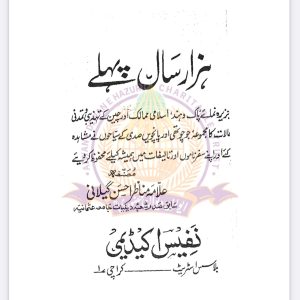 ہزار سال پہلے
جزیرہ نمائے پاک و ہند اسلامی ممالک اور چین کے تہذیبی و تمدنی
حالات کا مجموعہ جو چوتھی اور پانچویں صدی کے سیاحوں نے مشاہدہ
کئے اور اپنے سفرناموں اور تالیفات میں ہمیشہ کیلئے محفوظ کر دیئے
مصنفہ
علامہ مناظر احسن گیلانی
سابق صدر شعبہ دینیات جامعہ عثمانیہ
نفیس اکیڈیمی
بلاسس اسٹریٹ ــــ کراچی ۱ـ